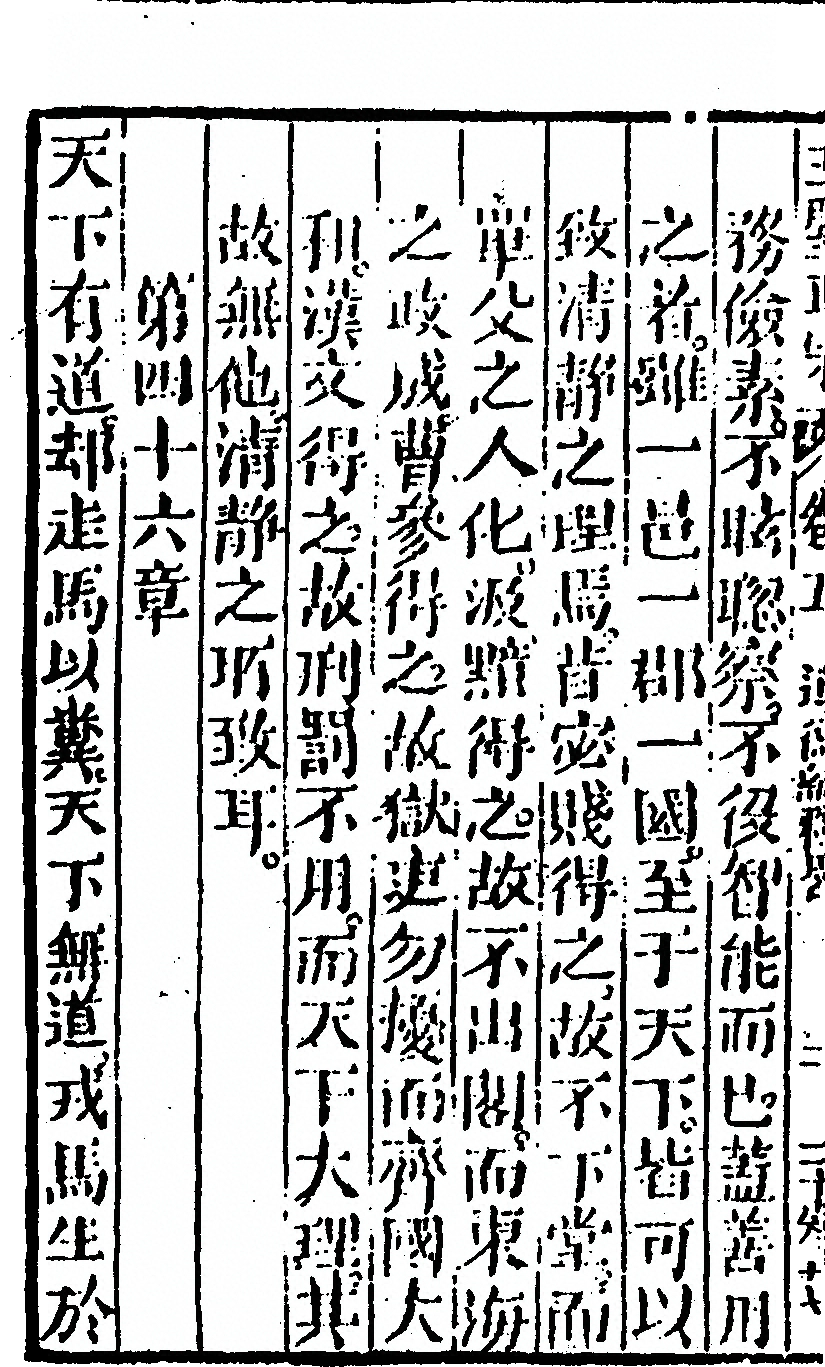 務儉素不時聰察不役智能而也蓋善用
之者雖一邑一郡一國至于天下皆可以
致清靜之理焉昔宓賤得之故不下堂而
單父之人化汲黯得之故不出閣而東海
之政成曹參得之故獄吏勿擾而齊國大
和漢文得之故刑罰不用而天下大理其
故無他清靜之所致耳
第四十六章
天下有道却走馬以糞天下無道戎馬生於